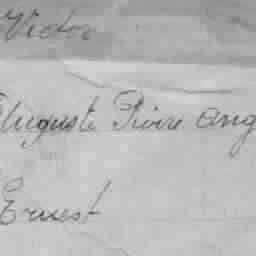 Victor
Auguste Pierre Ang
Ernest